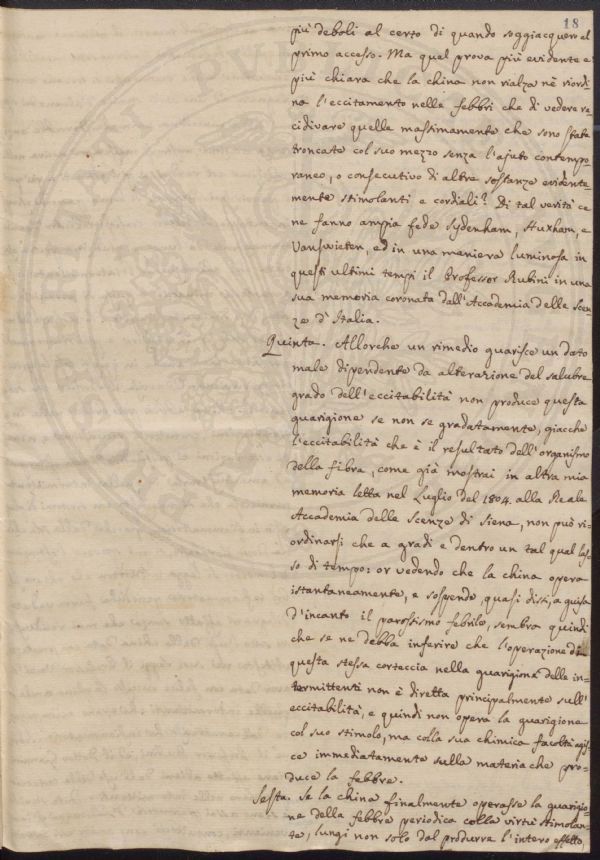 18
più deboli al certo di quando soggiacquero al
primo accesso. Ma qual prova più evidente e
più chiara che la china non rialza nè riordi
na l'eccitamento nelle febbri che di vedere re
cidivare quelle massimamente che sono state
troncate col suo mezzo senza l'ajuto contempo
raneo, o consecutivo di altre sostanze evidente
mente stimolanti e cordiali? Di tal verità ce
ne fanno ampia fede Sydenham, Huxham, e
Vanswieten, ed in una maniera luminosa in
questi ultimi tempi il Professor Rubini in una
sua memoria coronata dall'Accademia delle Scen
ze d'Italia.
Quinta. Allorche un rimedio guarisce un dato
male dipendente da alterazione del salubre
grado dell'eccitabilità non produce questa
guarigione se non se gradatamente, giacche
l'eccitabilità che è il resultato dell'organismo
della fibra, come già mostrai in altra mia
memoria letta nel Luglio del 1804. alla Reale
Accademia delle Scenze di Siena, non può ri=
ordinarsi che a gradi e dentro un tal qual las=
so di tempo: or vedendo che la china opera
istantaneamente, e sospende, quasi dissi, a guisa
d'incanto il parossismo febrile, sembra quindi
che se ne debba inferire che l'operazione di
questa stessa corteccia nella guarigione delle in=
termittenti non è diretta principalmente sull'
eccitabilità, e quindi non opera la guarigione
col suo stimolo, ma colla sua chimica facoltà agis=
ce immediatamente sulla materia che pro=
duce la febbre.
Sesta. Se la china finalmente operasse la guarigio=
ne della febbre periodica colla virtù stimolan=
te, lungi non solo dal produrre l'intero effetto,